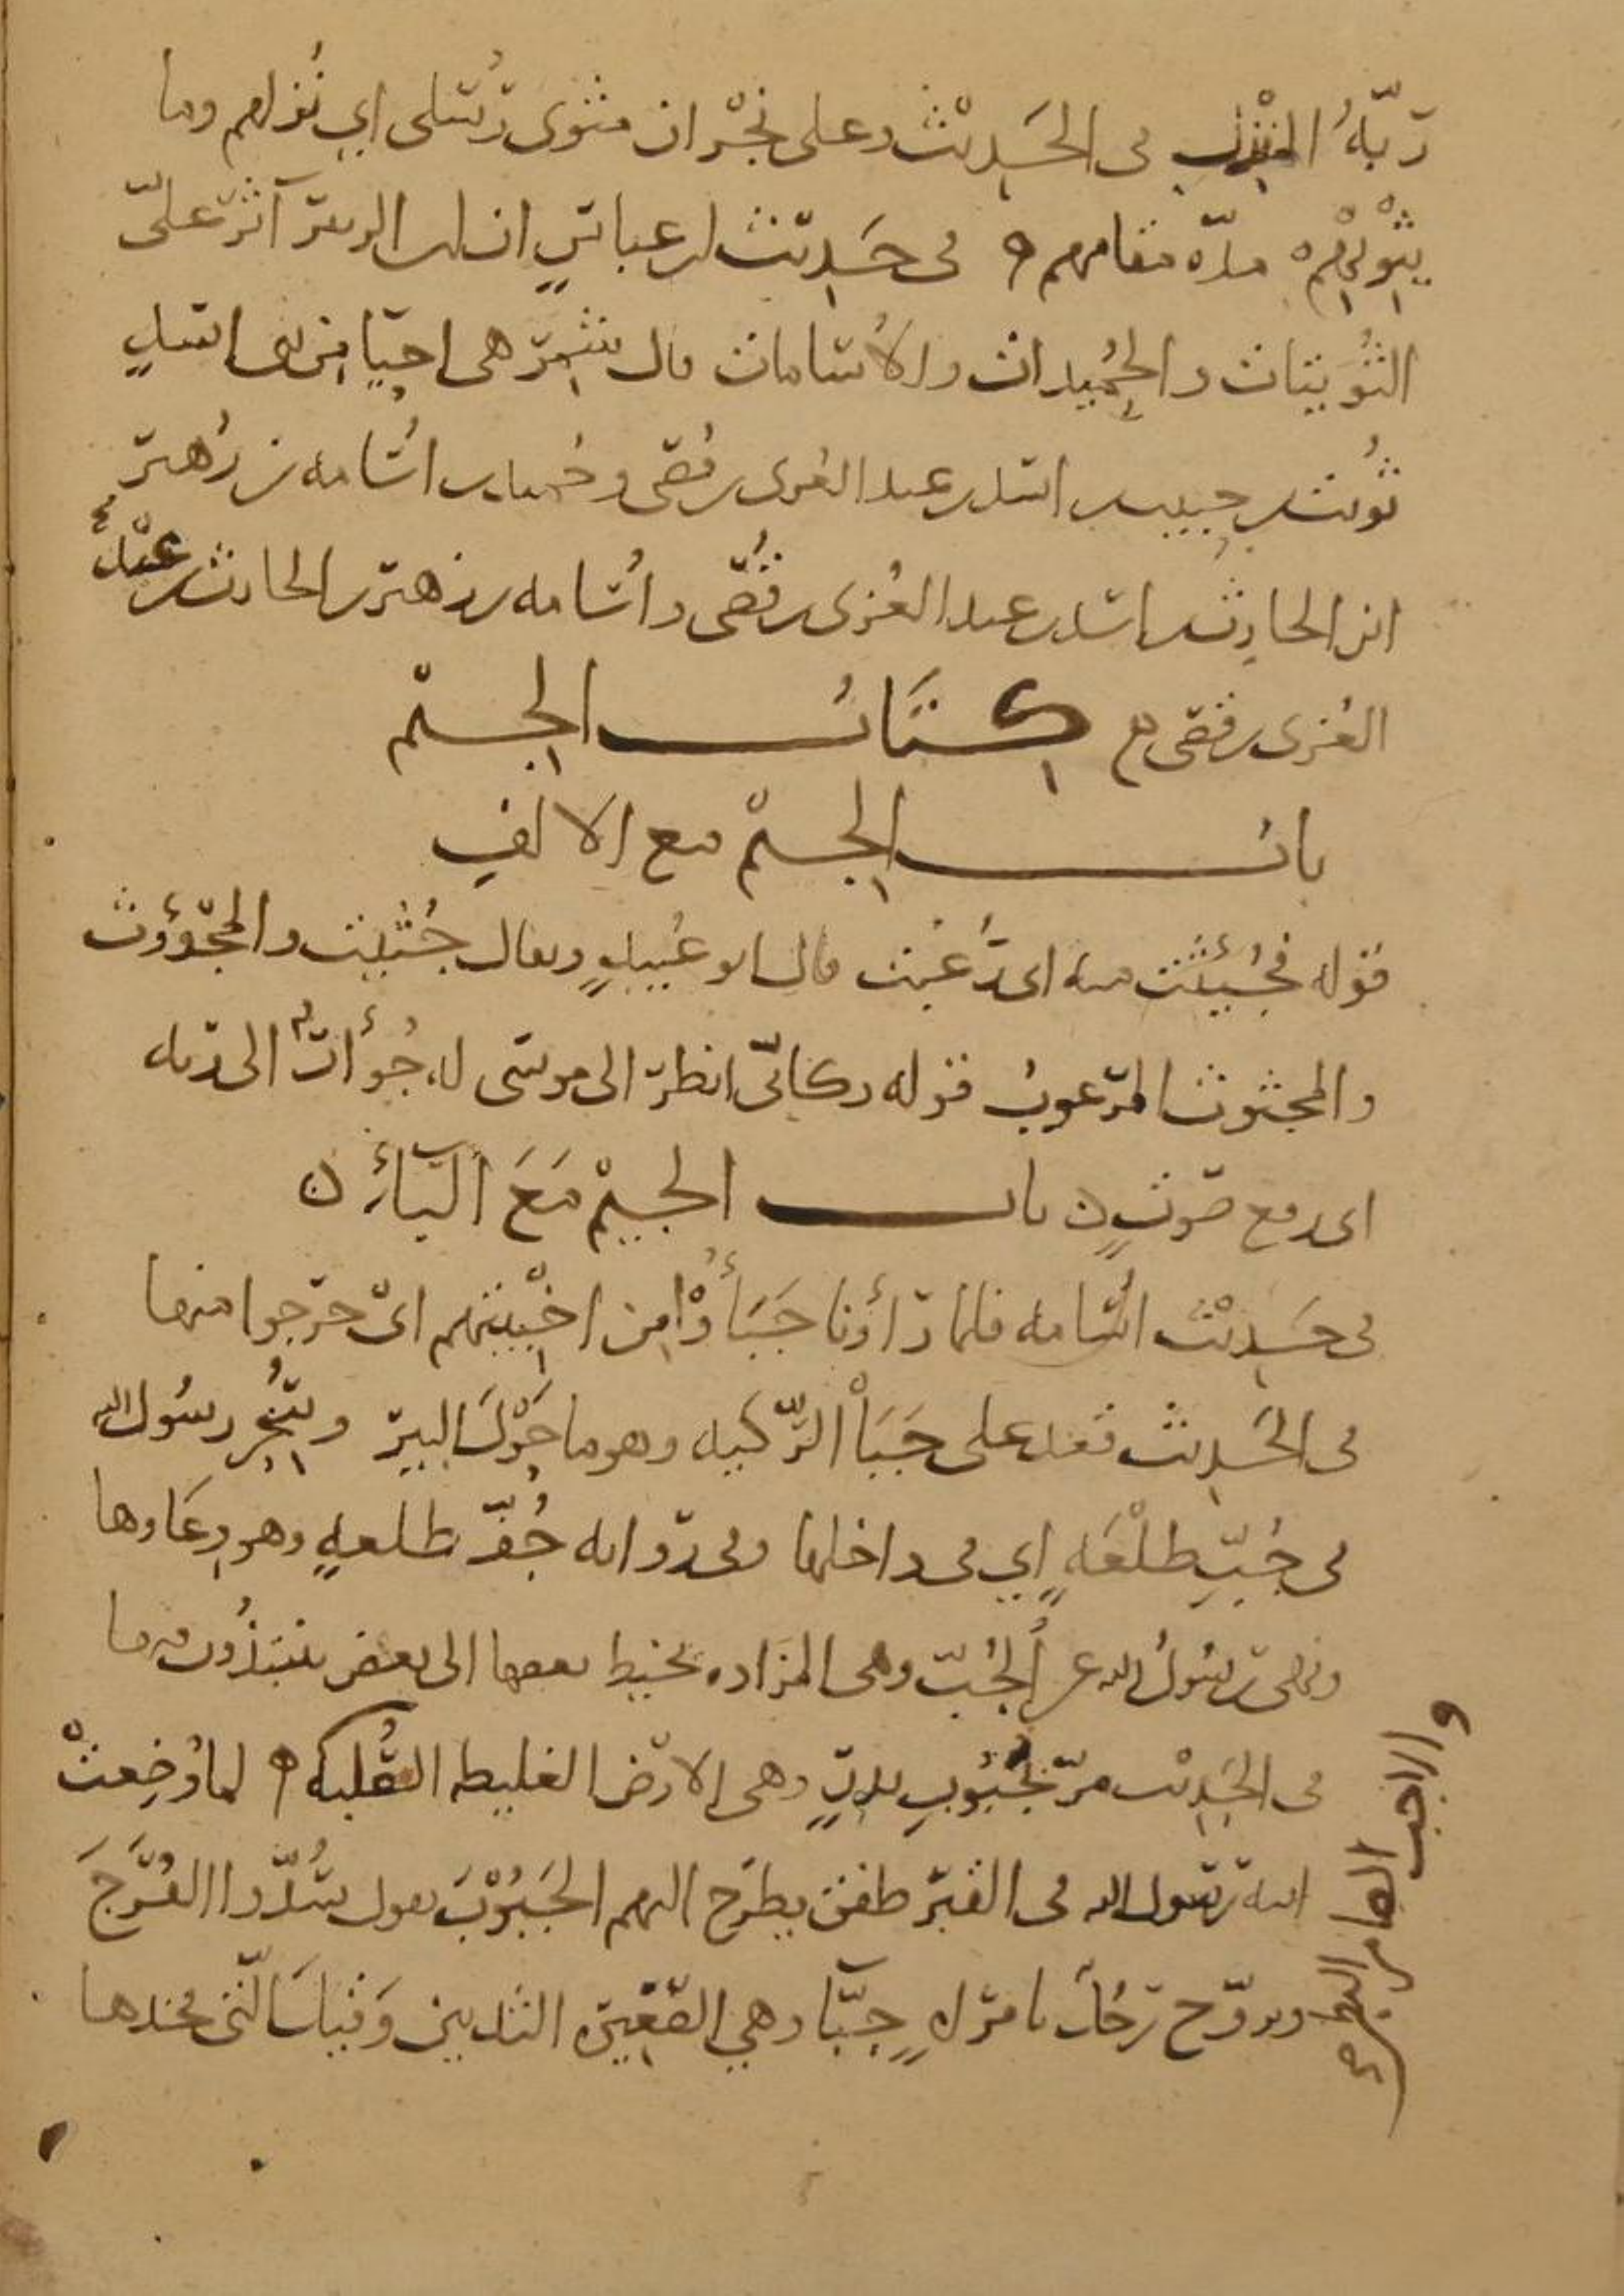 ربّهُ المنزل في الحَدِيث وعلى نَجْران مثوى رُسُلي اي نُزلهم وما
يثوِيْهِمْ مدّه مقامهم ه في حَدِيث ابن عباسٍ ان ابن الزبير آثر علىّ
التُّوَيتات والحُمَيدات والأُسامات قال شِمْر هي احيا من بني اسدٍ
تُويت بن حبيب بن اسد بن عبد العُزى بن قُصى وحُميد بن اُسامه بن زُهير
ابن الحارِث بن اسد بن عبد العُزى بن قُصّى واُسامه بن زهير بن الحارث بن عبْد
العُزى بن قصى كتَابُ الجِيْم
بابُ الجِيْم مع الالفِ
قوله فجُئِثْت منه اى رُعبْت قال ابو عُبيدٍ ويقال جُثِيْت والمجْؤوث
والمجثوث المرعوبُ قوله وكانّي انظر الى موسى له جُؤَارٌ الى ربه
اى رفع صوتٍ ن باب الجِيْم مَعَ البَاءِ ن
في حَدِيْث اُسامه فلما رأوْنا جَبَأُوْا مِن اخْبِيَتهم اىْ خرجوا منها
في الحَدِيث فقعد على جَبَأ الرّكيه وهو ما حَوْلَ البير وسُحِر رسُول الله
في جُبِّ طلْعَهٍ اي في داخلها وفي روايه جُفّ طلعهٍ وهو وِعَاوها
ونهى رسُولُ الله عن الجُبّ وهي المزَاده يخيط بعضها الى بعض ينتبذُون فيها
في الحَدِيْث مرّ بجَبُوبِ بدرٍ وهي الارض الغليظه الصُّلبه ه لما وُضِعتْ
ابنه رسول الله في القبر طفق يطرَح اليهم الجَبُوْبَ يقول سُدّوا الفُرَجَ
وبروح رجُلٌ بامراهٍ جبّا وهي الصَّغِيْره الثديين وَقياسَ الَّتي فخذها